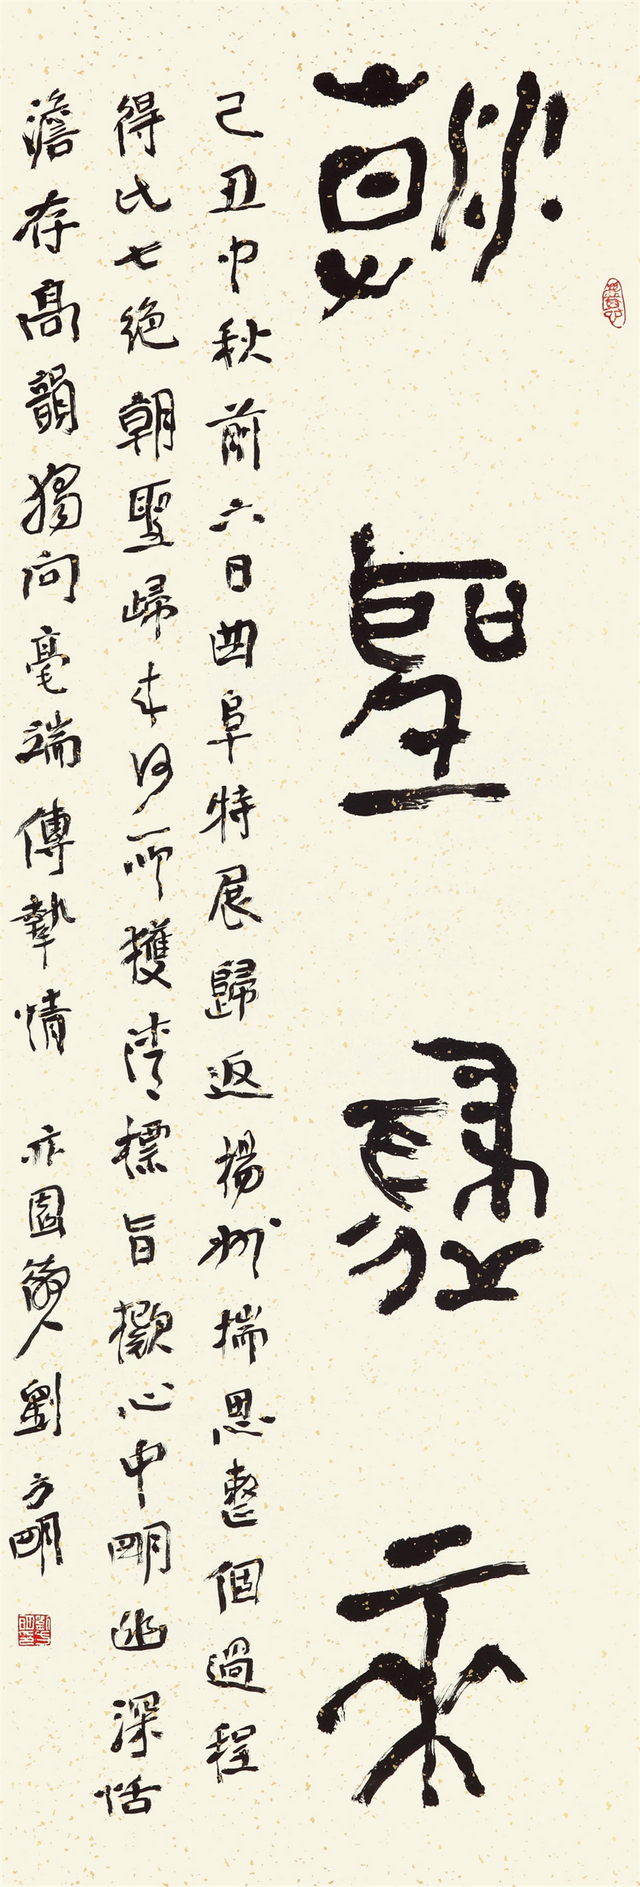 朝聖歸來
己丑中秋前六日曲阜特展歸返揚州揣思整個過程
得此七絕朝聖歸來何所獲清清標旨擬心中明幽深恬
澹存高韻獨向毫端傳摯情 亦園 人劉方明